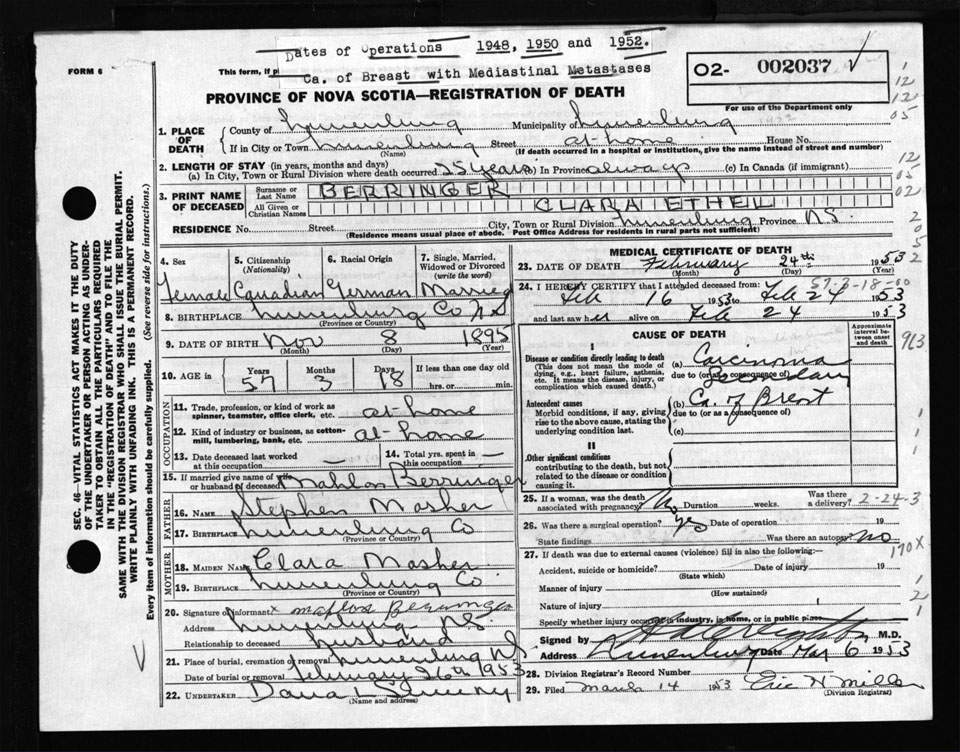 Dates of Operations 1948, 1950 and 1952.
FORM 6
This form, if p
Ca. of Breast with Mediastinal Metastases
02- 002037
For use of the Department only
PROVINCE OF NOVA SCOTIA—REGISTRATION OF DEATH
1. PLACE OF DEATH
County of Lunenburg Municipality of Lunenburg
If in City or Town Lunenburg Street at-home House No.
(Name) (If death occurred in a hospital or institution, give the name instead of street and number)
2. LENGTH OF STAY (in years, months and days)
(a) In City, Town or Rural Division where death occurred 25 years (b) In Province always (c) In Canada (if immigrant)
3. PRINT NAME OF DECEASED
Surname or Last Name BERRINGER
All Given or Christian Names CLARA ETHEL
RESIDENCE No. Street City, Town or Rural Division Lunenburg Province N.S.
(Residence means usual place of abode. Post Office Address for residents in rural parts not sufficient)
4. Sex
Female
5. Citizenship (Nationality)
Canadian
6. Racial Origin
German
7. Single, Married, Widowed or Divorced (write the word)
Married
8. BIRTHPLACE Lunenburg Co N.S
(Province or Country)
9. DATE OF BIRTH Nov 8 1895
(Month) (Day) (Year)
10. AGE in Years Months Days If less than one day old
57 3 18 hrs. or min.
OCCUPATION
11. Trade, profession, or kind of work as spinner, teamster, office clerk, etc. at-home
12. Kind of industry or business, as cotton-mill, lumbering, bank, etc. at-home
13. Date deceased last worked at this occupation —
14. Total yrs. spent in this occupation —
15. If married give name of wife or husband of deceased Mahlon Berringer
FATHER
16. NAME Stephen Mosher
17. BIRTHPLACE Lunenburg Co
(Province or Country)
MOTHER
18. MAIDEN NAME Clara Mosher
19. BIRTHPLACE Lunenburg Co.
(Province or Country)
20. Signature of informant x Mahlon Berringer
Address Lunenburg N.S.
Relationship to deceased husband
21. Place of burial, cremation or removal Lunenburg N.S
Date of burial or removal February 26th 1953
22. UNDERTAKER Dana L Sweeny
(Name and address)
MEDICAL CERTIFICATE OF DEATH
23. DATE OF DEATH February 24th 1953
(Month) (Day) (Year)
57-3-18-00
24. I HEREBY CERTIFY that I attended deceased from:
Feb 16 1953 to Feb 24 1953
and last saw her alive on Feb 24 1953
CAUSE OF DEATH
Approximate interval between onset and death
I
Disease or condition directly leading to death
(This does not mean the mode of dying, e.g., heart failure, asthenia, etc. It means the disease, injury, or complication which caused death.)
(a) Carcinoma
due to (or as a consequence of) Secondary
Antecedent causes
Morbid conditions, if any, giving rise to the above cause, stating the underlying condition last.
(b) Ca. of Brest
due to (or as a consequence of)
(c)
II
Other significant conditions
contributing to the death, but not related to the disease or condition causing it.
25. If a woman, was the death associated with pregnancy? No Duration weeks. Was there a delivery? 2-24-3
26. Was there a surgical operation? yes Date of operation 19
State findings Was there an autopsy? no
170X
27. If death was due to external causes (violence) fill in also the following:—
Accident, suicide or homicide? Date of injury 19
(State which)
Manner of injury
(How sustained)
Nature of injury
Specify whether injury occurred in industry, in home, or in public place
Signed by M.D.
Address Lunenburg Date Mar 6 1953
28. Division Registrar's Record Number
29. Filed March 14 1953 Eric N Miller
(Division Registrar)
SEC. 46—VITAL STATISTICS ACT MAKES IT THE DUTY
OF THE UNDERTAKER OR PERSON ACTING AS UNDER-
TAKER TO OBTAIN ALL THE PARTICULARS REQUIRED
IN THE "REGISTRATION OF DEATH" AND TO FILE THE
SAME WITH THE DIVISION REGISTRAR WHO SHALL ISSUE THE BURIAL PERMIT.
WRITE PLAINLY WITH UNFADING INK. THIS IS A PERMANENT RECORD.
Every item of information should be carefully supplied. (See reverse side for instructions.)